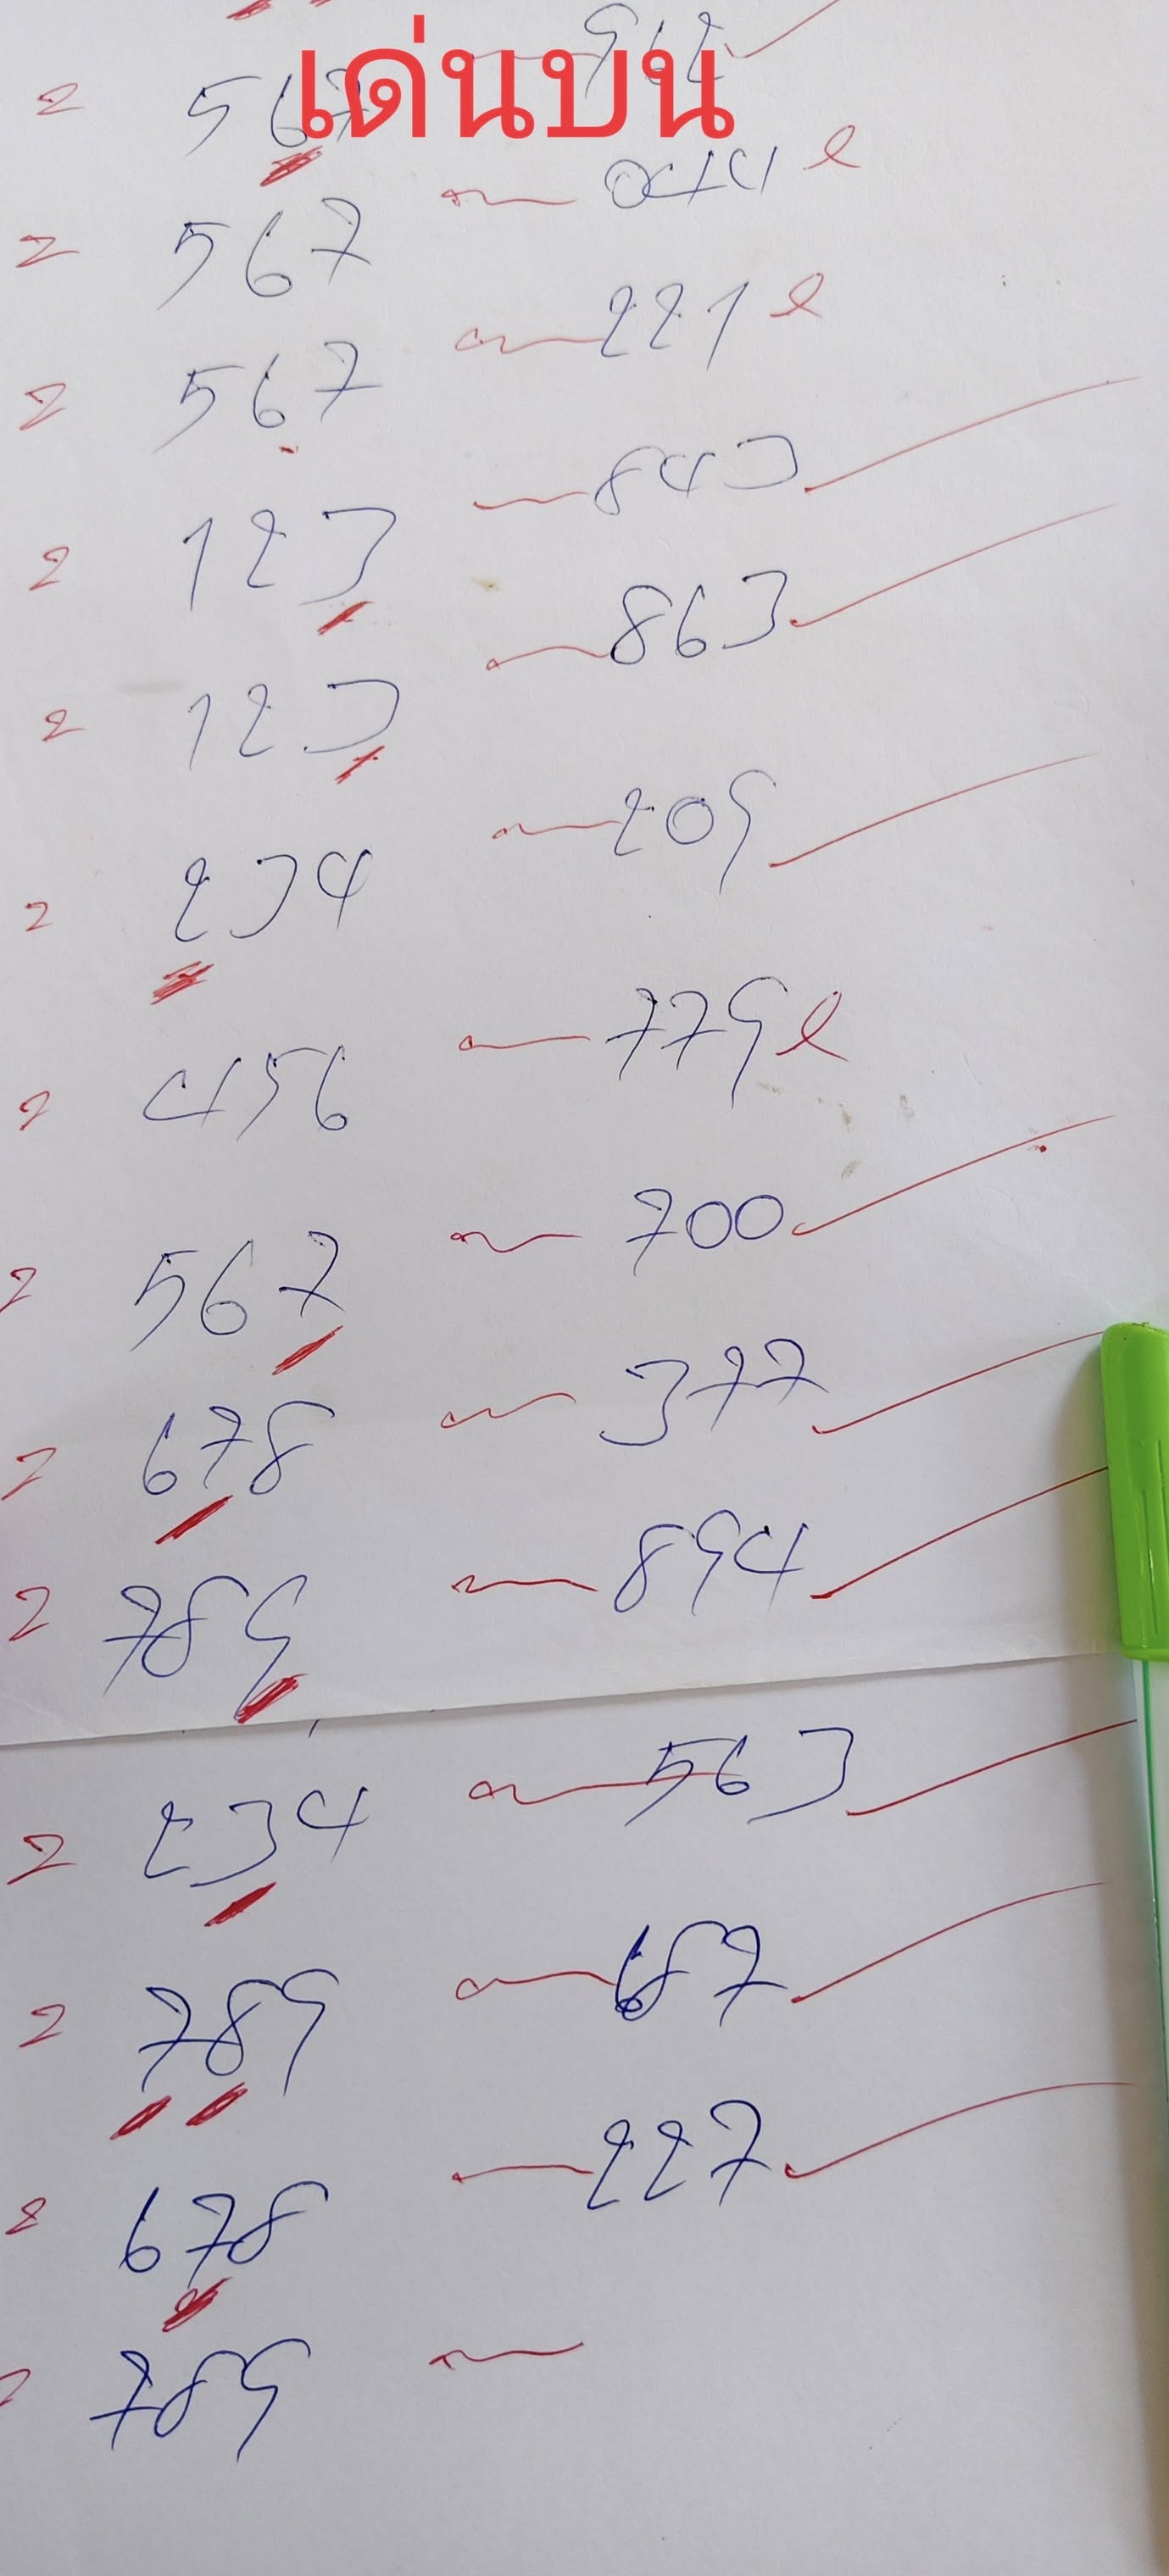 เด่นบน
2 567 — 962 ✓
2 567 — 044 ℓ
2 567 — 221 ℓ
2 123 — 843 ✓
2 123 — 863 ✓
2 234 — 209 ✓
2 456 — 779 ℓ
2 567 — 700 ✓
2 678 — 377 ✓
2 789 — 894 ✓
2 234 — 563 ✓
2 789 — 687 ✓
2 678 — 227 ✓
789 —